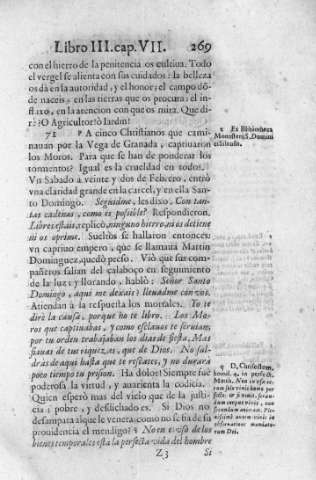 Libro III. cap. VII. 269
con el hierro de la penitencia os cultiua. Todo
el vergel se alienta con sus cuidados: la belleza
os dà en la autoridad, y el honor; el campo dõ-
de naceis, en las tierras que os procura: el in-
fluxo, en la atencion con que os mira. Que di-
rè? O Agricultor! ò Iardin!
71 A cinco Christianos que cami-
nauan por la Vega de Granada, captiuaron
los Moros. Para que se han de ponderar los
tormentos? Igual es la crueldad en todos.
Vn Sabado a veinte y dos de Febrero, entrò
vna claridad grande en la carcel, y en ella San-
to Domingo. Seguidme, les dixo. Con tan-
tas cadenas, como es posible? Respondieron.
Libres estais, replicò, ninguno hierro ai os detiene
ni os oprime. Sueltos se hallaron entonces:
vn captiuo empero, que se llamaua Martin
Dominguez, quedò preso. Viò que sus com-
pañeros salian del calaboço en seguimiento
de la luz: y llorando, hablò: Señor Santo
Domingo, aqui me dexais? lleuadme con vos.
Atiendan a la respuesta los mortales. Yo te
dirè la causa, porque no te libro. Los Mo-
ros que captiuabas, y como esclauos te seruian,
por tu orden trabajaban los dias de fiesta. Mas
fiauas de tus riquezas, que de Dios. No sal-
dràs de aqui hasta que te rescates, y no durarà
poco tiempo tu prision. Ha dolor! Siempre fue
poderosa la virtud, y auarienta la codicia.
Quien esperò mas del vicio que de la jus-
ticia: pobre, y desdichado es. Si Dios no
desampara al que le venera: como no se ha de
prouidencia el mendigo? No en el vso de los
bienes temporales esta la perfecta vida del hombre
Z 3 Si
Ex Bibliotheca
Monasterij S. Dominici
D. Chrisostom.
homil. in perfect.
Matth.